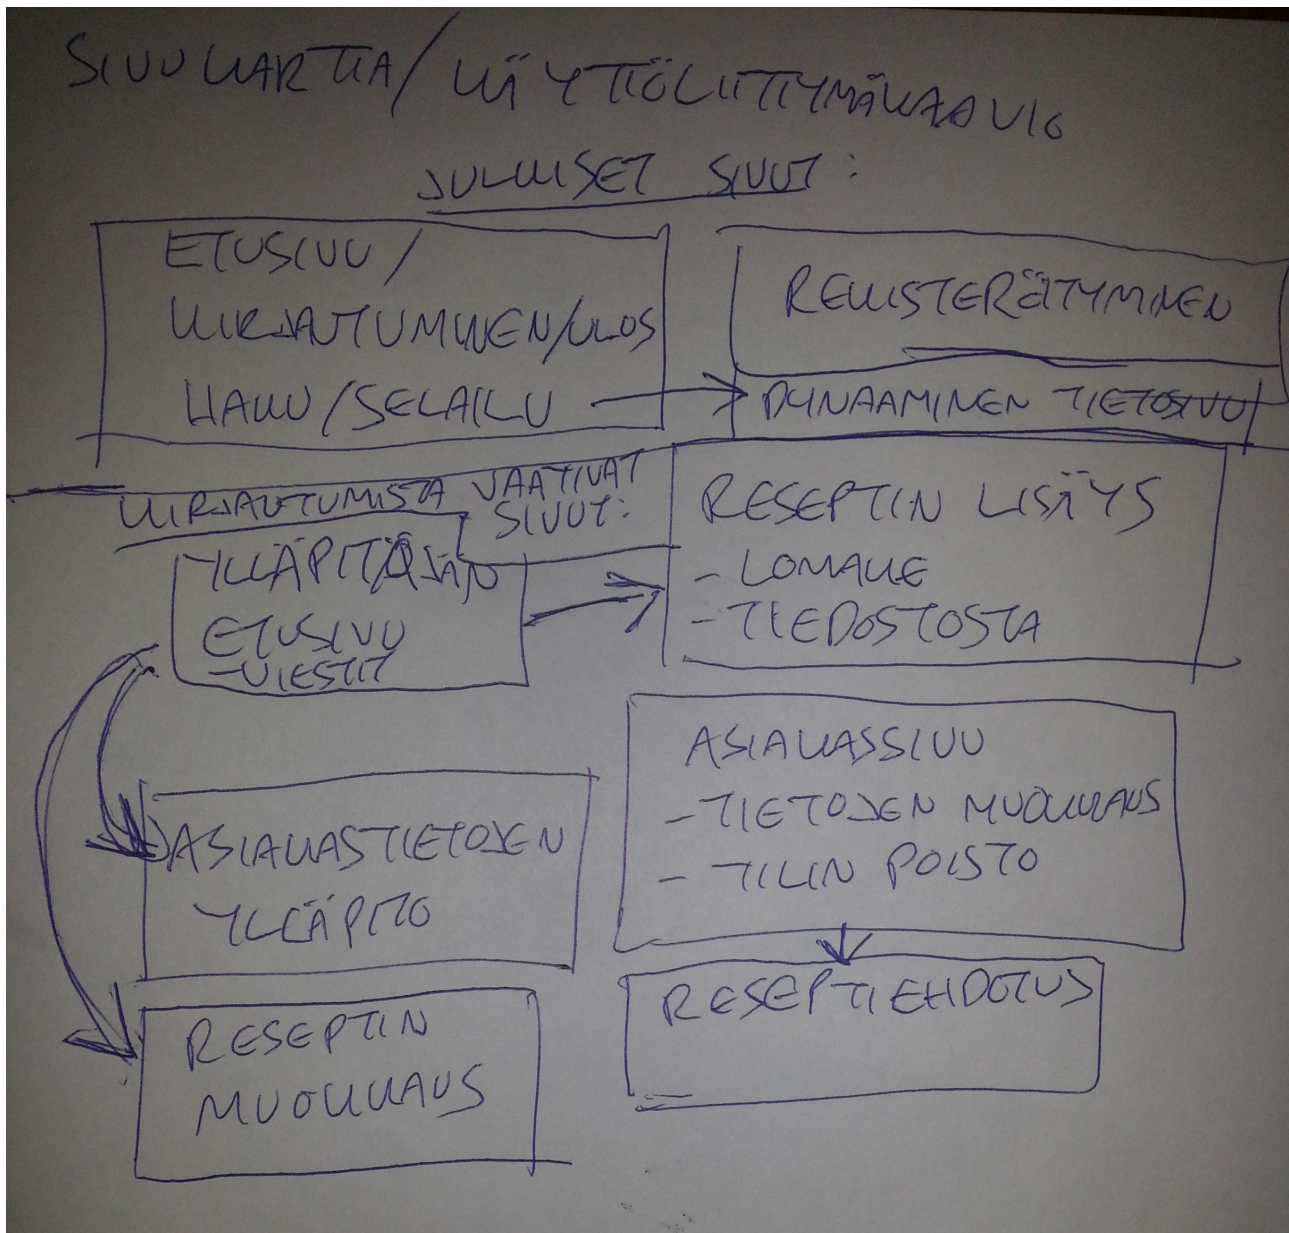 SIVUKARTTA/KÄYTTÖLIITTYMÄKAAVIO
JULKISET SIVUT:
ETUSIVU/
KIRJAUTUMINEN/ULOS
HAKU/SELAILU
REKISTERÖITYMINEN
DYNAAMINEN TIETOSIVU
KIRJAUTUMISTA VAATIVAT
SIVUT:
YLLÄPITÄJÄN
ETUSIVU
-VIESTIT
RESEPTIN LISÄYS
- LOMAKE
- TIEDOSTOSTA
ASIAKASSIVU
- TIETOJEN MUOKKAUS
- TILIN POISTO
ASIAKASTIETOJEN
YLLÄPITO
RESEPTIEHDOTUS
RESEPTIN
MUOKKAUS